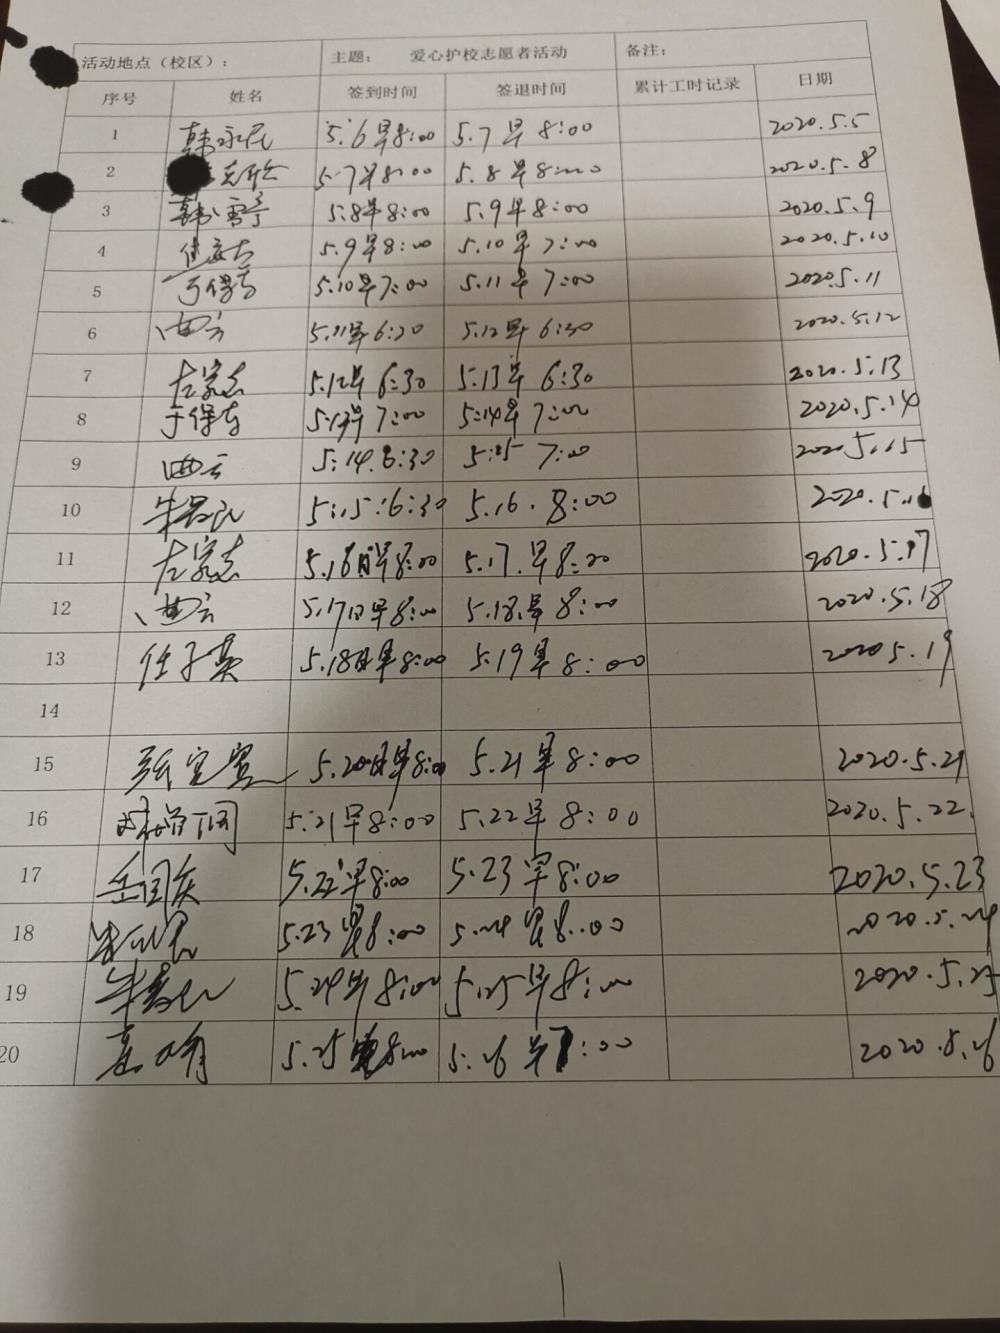 活动地点（校区）： 主题： 爱心护校志愿者活动 备注：
序号 姓名 签到时间 签退时间 累计工时记录 日期
1 韩永民 5.6早8:00 5.7早8:00 2020.5.5
2 5.7早8:00 5.8早8:00 2020.5.8
3 韩雪亭 5.8早8:00 5.9早8:00 2020.5.9
4 5.9早8:00 5.10早7:00 2020.5.10
5 于保方 5.10早7:00 5.11早7:00 2020.5.11
6 曲云 5.11早6:30 5.12早6:30 2020.5.12
7 左家志 5.12早6:30 5.13早6:30 2020.5.13
8 于保方 5.13早7:00 5.14早7:00 2020.5.14
9 曲云 5:14.6:30 5:15 7:00 2020.5.15
10 5:15:6:30 5.16.8:00 2020.5.16
11 左家志 5.16日早8:00 5.17.早8:00 2020.5.17
12 曲云 5.17日早8:00 5.18.早8:00 2020.5.18
13 任子英 5.18日早8:00 5.19早8:00 2020 5.19
14
15 5.20日早8:00 5.21早8:00 2020.5.21
16 5.21早8:00 5.22早8:00 2020.5.22.
17 岳国庆 5.22早8:00 5.23早8:00 2020.5.23
18 5.23早8:00 5.24早8:00 2020.5.24
19 5.24早8:00 5.25早8:00 2020.5.25
20 5.25早8:00 5.26早7:00 2020.5.26